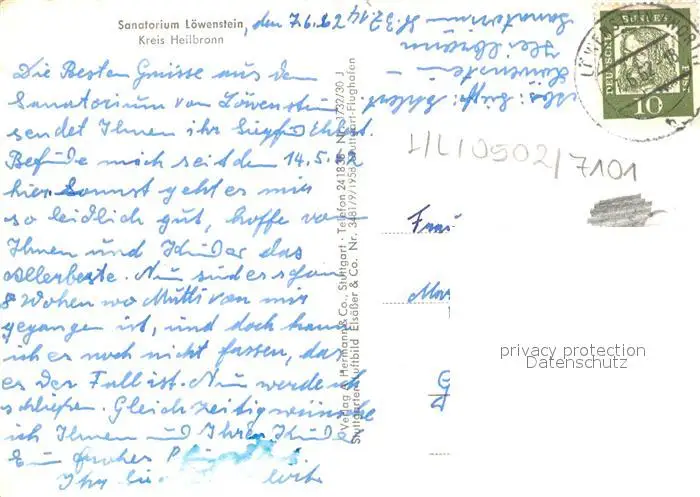 Sanatorium Löwenstein, den 7.6.62
Kreis Heilbronn
Die Besten Grüsse aus dem
Sanatorium von Löwenstein
sendet Ihnen ihr Siegfried
Befinde mich seit dem 14.5.62
hier. Sonnst geht es mir
so leidlich gut, hoffe von
Ihnen und Kinder das
allerbeste. Nun sind es schon
8 Wohen wo Mutti von mir
gegangen ist, und doch kann
ich es noch nicht fassen, das
es der Fall ist. Nun werde ich
schließen. Gleichzeitig wünsche
ich Ihnen und Ihren Kinder
Ein frohes
Ihr
Abs: Siegfr:
Löwenstein –
Heilbronn
Sanatorium
Verlag A. Hermann & Co., Stuttgart · Telefon 241838
Stuttgarter Luftbild Elsäßer & Co. Nr. 3481/9/1958 Stuttgart-Flughafen
DEUTSCHE BUNDESPOST
10
L/L/0502/7101
Frau
G
privacy protection
Datenschutz